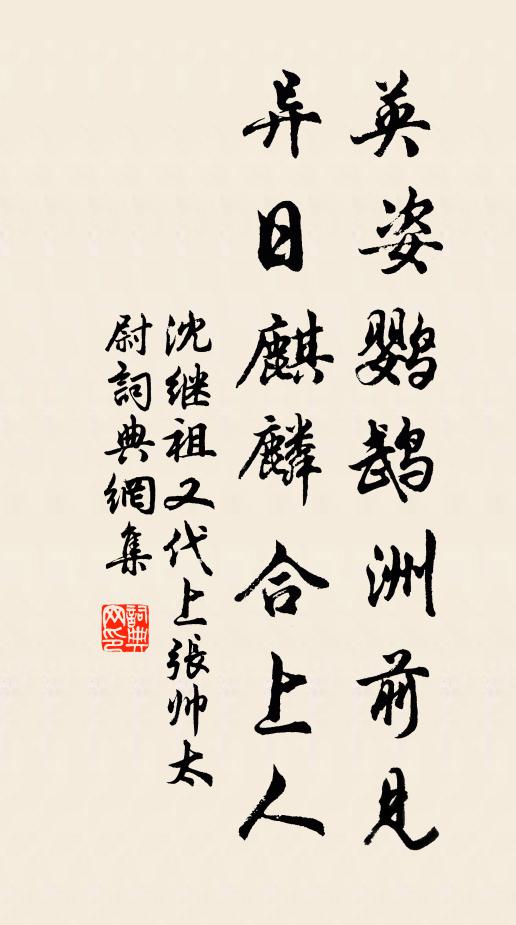 英姿鹦鹉洲前见
异日麒麟合上人
沈继祖又代上張帅太
尉詞典網集
詞典网印